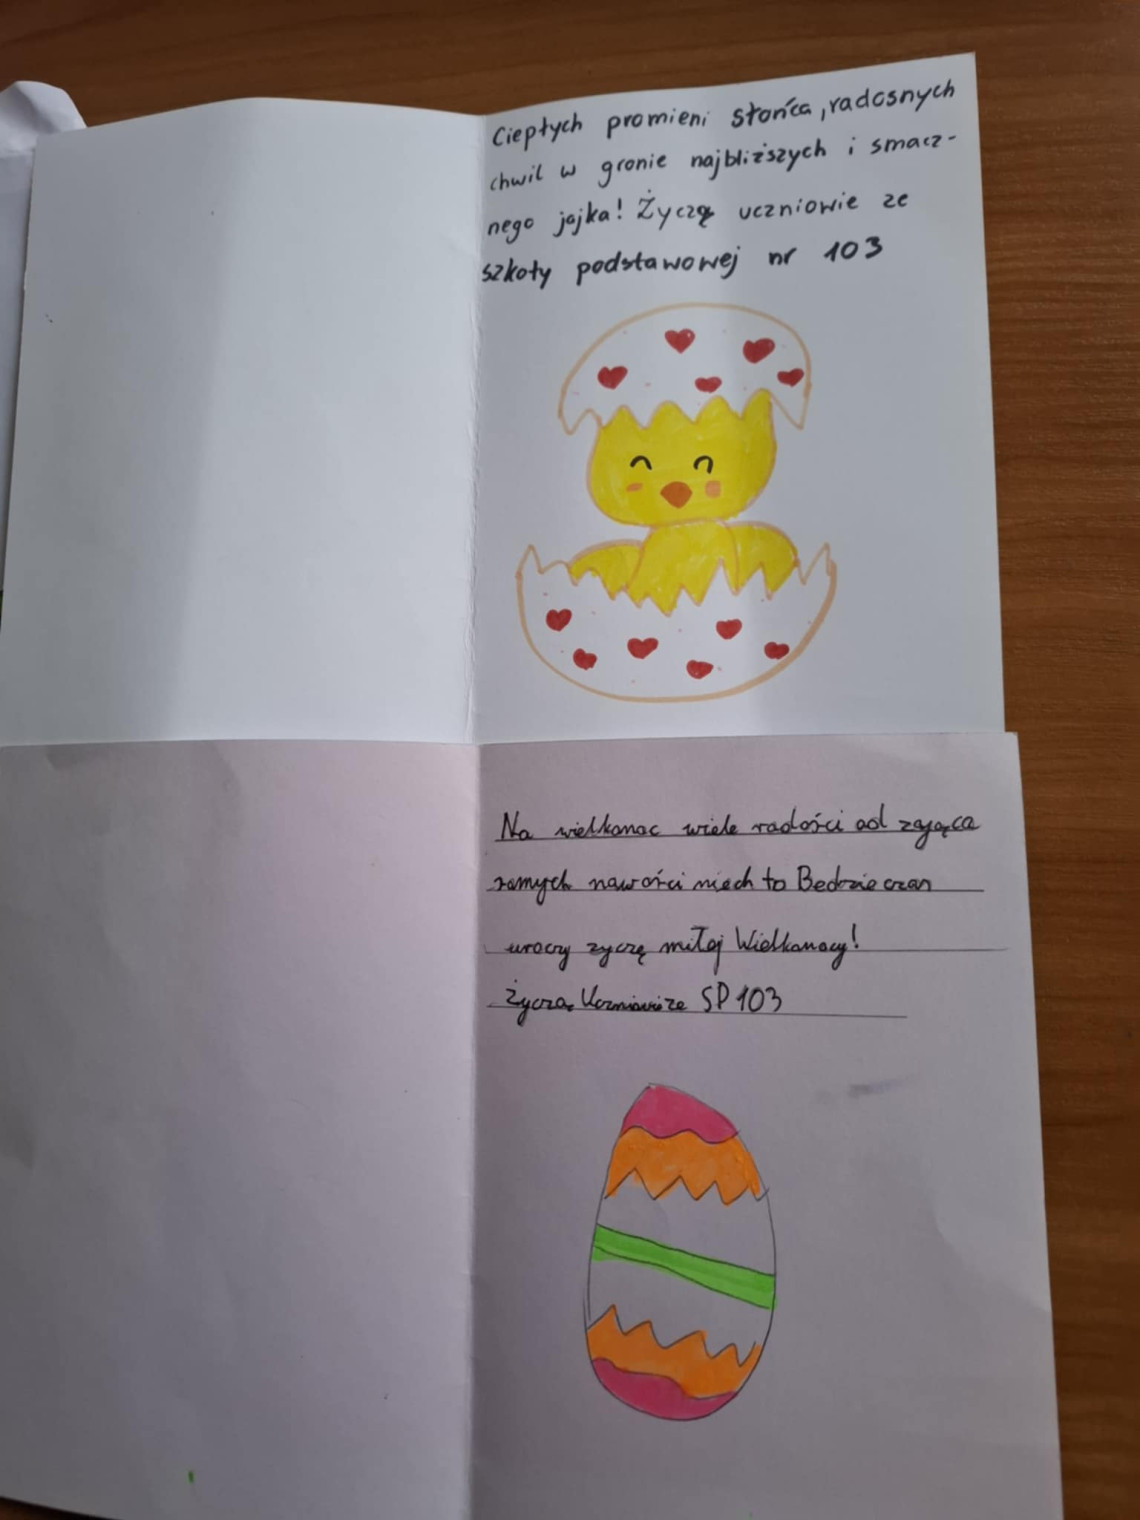 Ciepłych promieni słońca, radosnych
chwil w gronie najbliższych i smacz-
nego jajka! Życzą uczniowie ze
szkoły podstawowej nr 103
Na wielkanoc wiele radości od zająca
samych nowości niech to Bedzie czas
uroczy zyczę miłej Wielkanocy!
Życzą Uczniowie ze SP 103